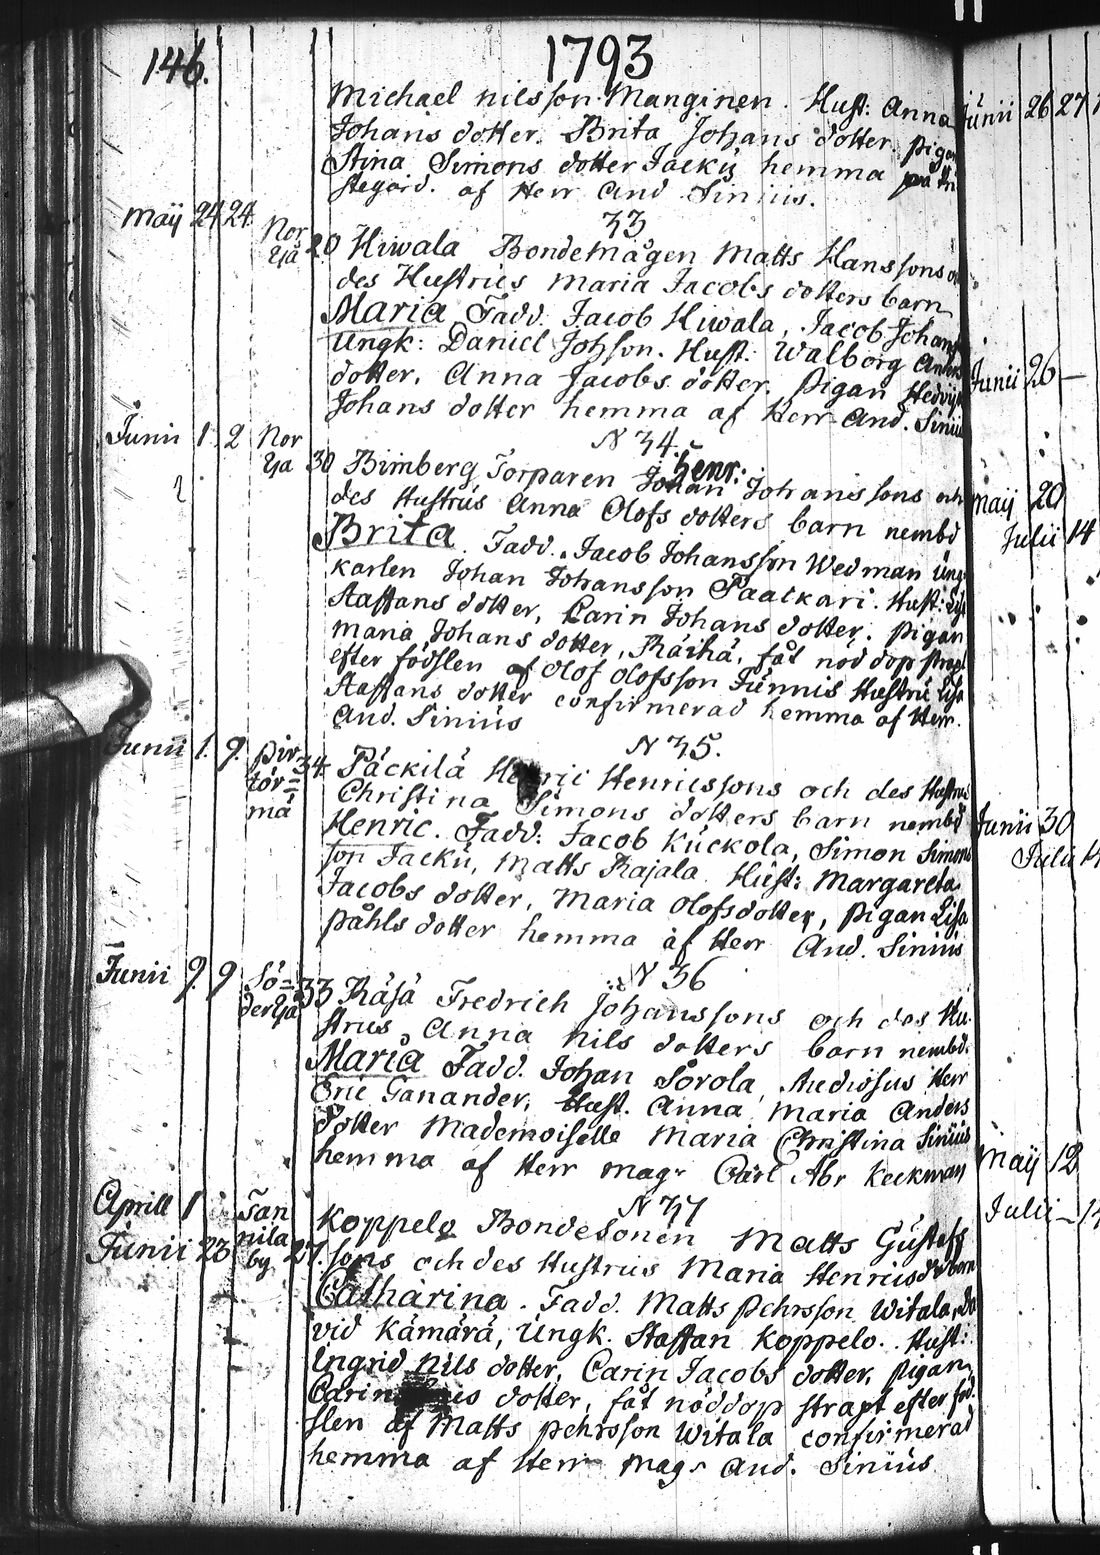 146.
1793
Michael Nilsson Manginen. Hust: Anna
Johans dotter. Brita Johans dotter. Pigan
Stina Simons dotter Jäckü hemma på
stegård. af Herr And Sinius.
Maÿ 24 24
33
Nor yå 20 Hiwala Bondemågen Matts Hanssons
des Hustrus Maria Jacobs dotters barn
Maria Fadd. Jacob Hiwala, Jacob Johans
Ungk: Daniel Johson. Hust: Walborg Anders
dotter, Anna Jacobs dotter, Pigan Hedvig
Johans dotter hemma af Herr And. Sinius
Junii 1. 2
N 34.
Henr:
Nor ya 30 Bimberg Torparen Johan Johanssons och
des Hustrus Anna Olofs dotters barn nembd
Brita. Fadd. Jacob Johansson Wedman Ung
karlen Johan Johansson Paatkari. Hust: Lisa
Staffans dotter, Carin Johans dotter. Pigan
Maria Johans dotter, Räihä, fåt nöd dop strapt
efter födslen af Olof Olofsson Junnis Hustru Lisa
Staffans dotter confirmerad hemma af Herr.
And. Sinius
Junii 1. 9.
N 35.
Pir tör= mä 34 Päckilä Henric Henricssons och des Hustrus
Christina Simons dotters barn nembd
Henric. Fadd: Jacob Kuckola, Simon Simons
son Jackü, Matts Rajala. Hust: Margareta
Jacobs dotter, Maria Olofsdotter, Pigan Lisa
Påhls dotter hemma af Herr And. Sinius
Junii 9. 9
N 36
Sö= deryå 33 Räsä Fredrich Johanssons och des Hu
strus Anna Nils dotters barn nembd.
Maria Fadd. Johan Sorola, Studiosus Herr
Eric Ganander, Hust. Anna Maria Anders
dotter Mademoiselle Maria Christina Sinius
hemma af Herr Magr Carl Abr Keckman
Aprill 1
N 37
Junii 23
Tan nila by 27. Koppelo Bondesonen Matts Gustafs
sons och des Hustrus Maria Henricsd:r barn
Catharina. Fadd. Matts Pehrsson Witala, Da
vid Kämärä, Ungk. Staffan Koppelo. Hust:
Ingrid Nils dotter, Carin Jacobs dotter, Pigan
Carin dotter, fåt nöddop strapt efter föd
slen af Matts Pehrsson Witala confirmerad
hemma af Herr Magr And. Sinius
Junii 26 27
Junii 26
Maÿ 20
Julii 14
Junii 30
Julii 14
Maÿ 12
Julii 14